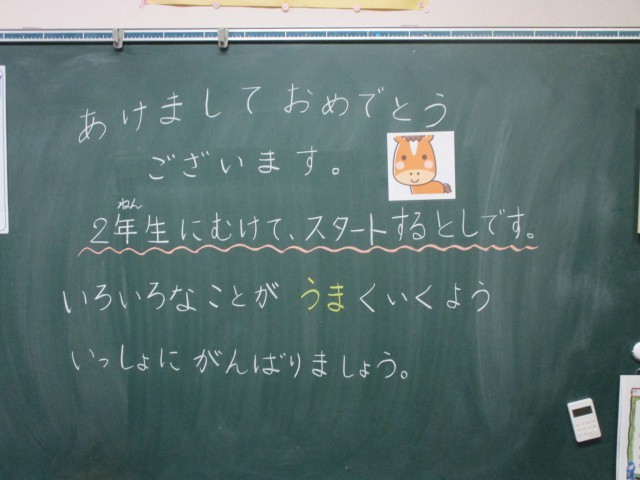 あけましておめでとう
ございます。
2年生にむけて、スタートするとしです。
ねん
いろいろなことが うまくいくよう
いっしょに がんばりましょう。